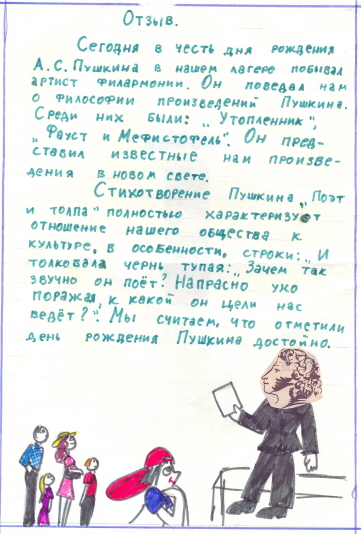 Отзыв.
Сегодня в честь дня рождения
А.С. Пушкина в нашем лагере побывал
артист филармонии. Он поведал нам
о философии произведений Пушкина.
Среди них были: „Утопленник",
„Фауст и Мефистофель". Он пред-
ставил известные нам произве-
дения в новом свете.
Стихотворение Пушкина „Поэт
и толпа" полностью характеризует
отношение нашего общества к
культуре, в особенности, строки: „И
толковала чернь тупая: „Зачем так
звучно он поёт? Напрасно ухо
поражая, к какой он цели нас
ведёт?". Мы считаем, что отметили
день рождения Пушкина достойно.